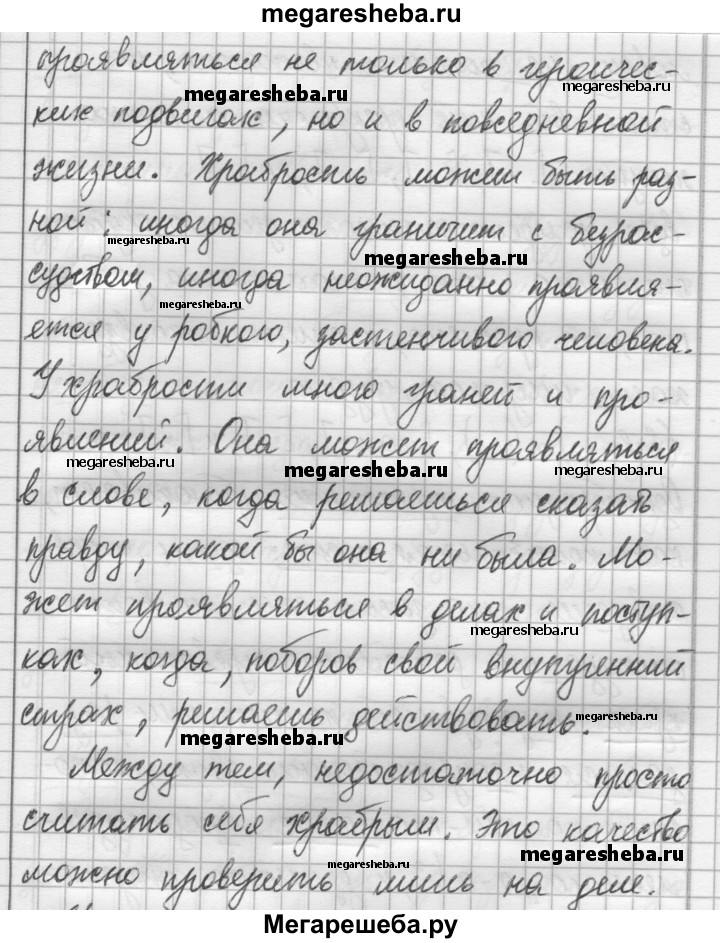 megaresheba.ru
проявляться не только в героичес-
megaresheba.ru
megaresheba.ru
ких подвигах, но и в повседневной
жизни. Храбрость может быть раз-
ной: иногда она граничит с безрас-
megaresheba.ru
megaresheba.ru
судством, иногда неожиданно проявля-
megaresheba.ru
ется у робкого, застенчивого человека.
У храбрости много граней и про-
явлений. Она может проявляться
megaresheba.ru
megaresheba.ru
megaresheba.ru
в слове, когда решаешься сказать
правду, какой бы она ни была. Мо-
жет проявляться в делах и поступ-
megaresheba.ru
ках, когда, поборов свой внутренний
страх, решаешь действовать.
megaresheba.ru
megaresheba.ru
Между тем, недостаточно просто
считать себя храбрым. Это качество
megaresheba.ru
megaresheba.ru
можно проверить лишь на деле.
Мегарешеба.ру